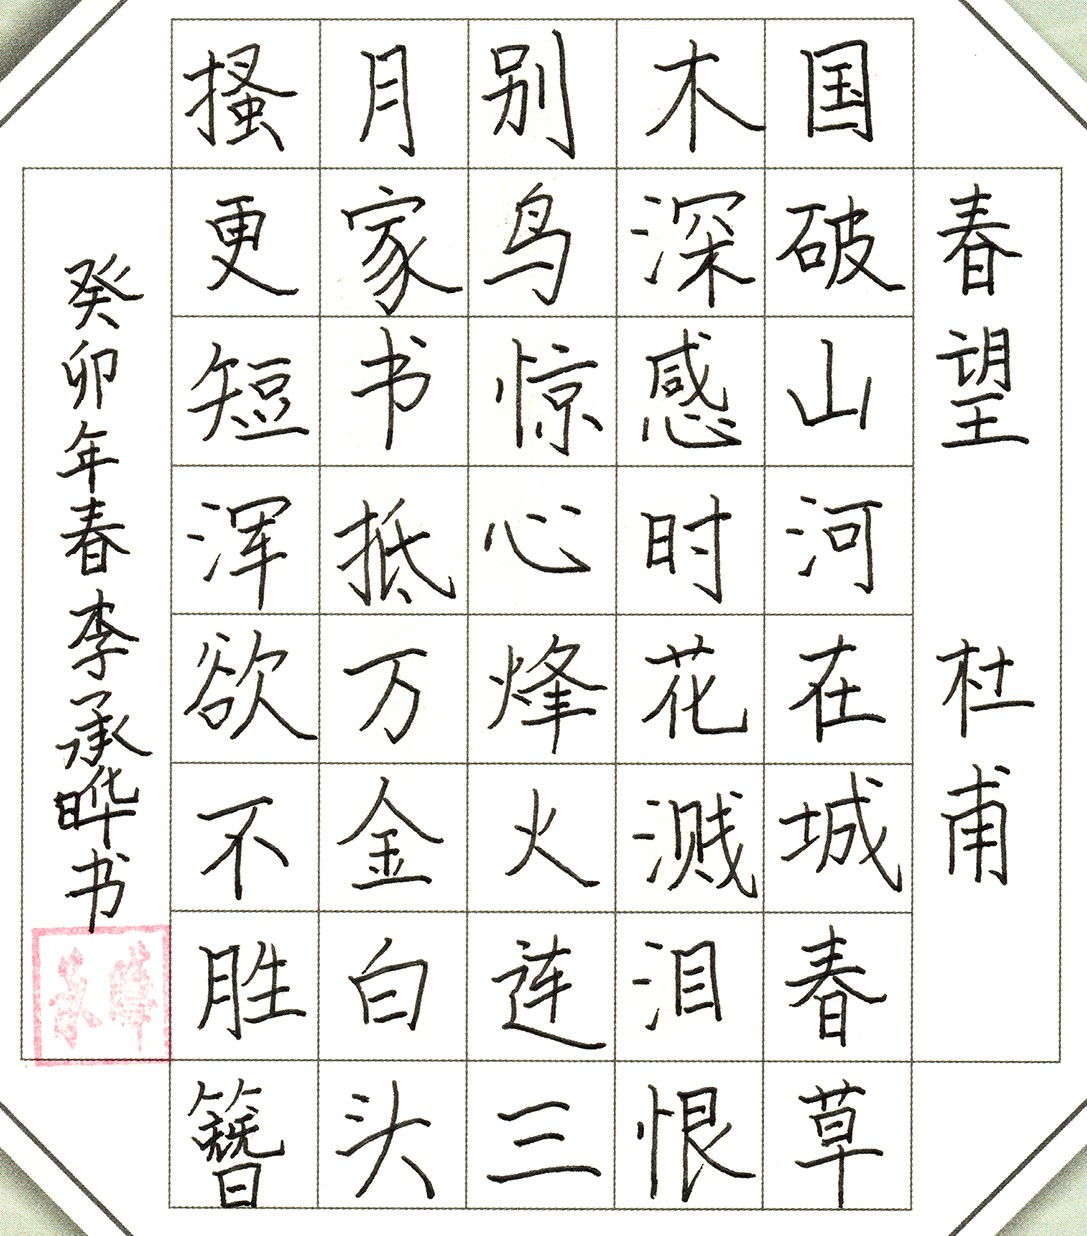 春望 杜甫
国破山河在城春草
木深感时花溅泪恨
别鸟惊心烽火连三
月家书抵万金白头
搔更短浑欲不胜簪
癸卯年春李承晔书